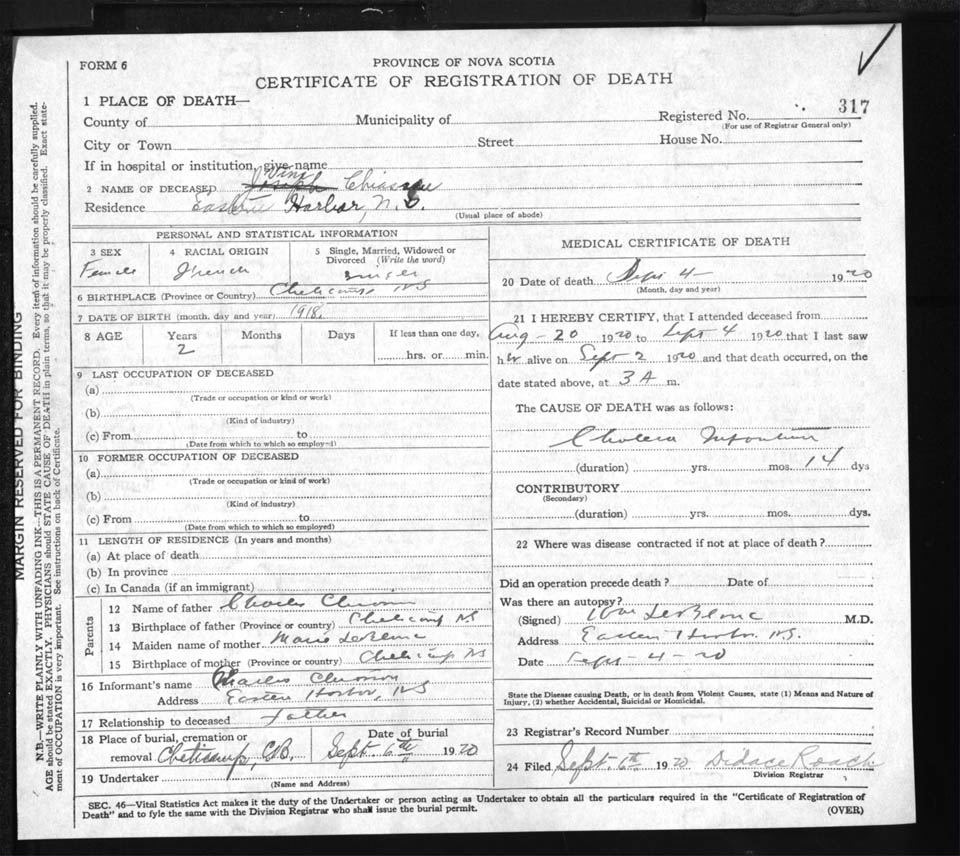 FORM 6
PROVINCE OF NOVA SCOTIA
CERTIFICATE OF REGISTRATION OF DEATH
317
1 PLACE OF DEATH—
County of Municipality of Registered No.
(For use of Registrar General only)
City or Town Street House No.
If in hospital or institution, give name
2 NAME OF DECEASED Joseph
Residence Eastern Harbor, N.S.
(Usual place of abode)
PERSONAL AND STATISTICAL INFORMATION
3 SEX 4 RACIAL ORIGIN 5 Single, Married, Widowed or Divorced (Write the word)
Female French single
6 BIRTHPLACE (Province or Country) Cheticamp NS
7 DATE OF BIRTH (month, day and year) 1918.
8 AGE Years Months Days If less than one day,
2 hrs. or min.
9 LAST OCCUPATION OF DECEASED
(a)
(Trade or occupation or kind or work)
(b)
(Kind of industry)
(c) From to
(Date from which to which so employed)
10 FORMER OCCUPATION OF DECEASED
(a)
(Trade or occupation or kind of work)
(b)
(Kind of industry)
(c) From to
(Date from which to which so employed)
11 LENGTH OF RESIDENCE (In years and months)
(a) At place of death
(b) In province
(c) In Canada (if an immigrant)
Parents
12 Name of father Charles
13 Birthplace of father (Province or country) Cheticamp NS
14 Maiden name of mother Marie LeBlanc
15 Birthplace of mother (Province or country) Cheticamp NS
16 Informant's name Charles
Address Eastern Harbor, NS
17 Relationship to deceased Father
18 Place of burial, cremation or removal Cheticamp, C.B. Date of burial Sept. 6th 1920
19 Undertaker
(Name and Address)
MEDICAL CERTIFICATE OF DEATH
20 Date of death Sept 4 1920
(Month, day and year)
21 I HEREBY CERTIFY, that I attended deceased from
Aug - 20 1920 to Sept 4 1920 that I last saw
her alive on Sept 2 1920 and that death occurred, on the
date stated above, at 3 A m.
The CAUSE OF DEATH was as follows:
Cholera Infantum
(duration) yrs. mos. 14 dys
CONTRIBUTORY
(Secondary)
(duration) yrs. mos. dys.
22 Where was disease contracted if not at place of death?
Did an operation precede death? Date of
Was there an autopsy?
(Signed) Wm LeBlanc M.D.
Address Eastern Harbor NS.
Date Sept - 4 - 20
State the Disease causing Death, or in death from Violent Causes, state (1) Means and Nature of
Injury, (2) whether Accidental, Suicidal or Homicidal.
23 Registrar's Record Number
24 Filed Sept. 6th 1920 Didace Roach
Division Registrar
SEC. 46—Vital Statistics Act makes it the duty of the Undertaker or person acting as Undertaker to obtain all the particulars required in the "Certificate of Registration of
Death" and to fyle the same with the Division Registrar who shall issue the burial permit.
(OVER)
MARGIN RESERVED FOR BINDING
N.B.—WRITE PLAINLY WITH UNFADING INK—THIS IS A PERMANENT RECORD. Every item of information should be carefully supplied.
AGE should be stated EXACTLY. PHYSICIANS should STATE CAUSE OF DEATH in plain terms, so that it may be properly classified. Exact state-
ment of OCCUPATION is very important. See instructions on back of Certificate.